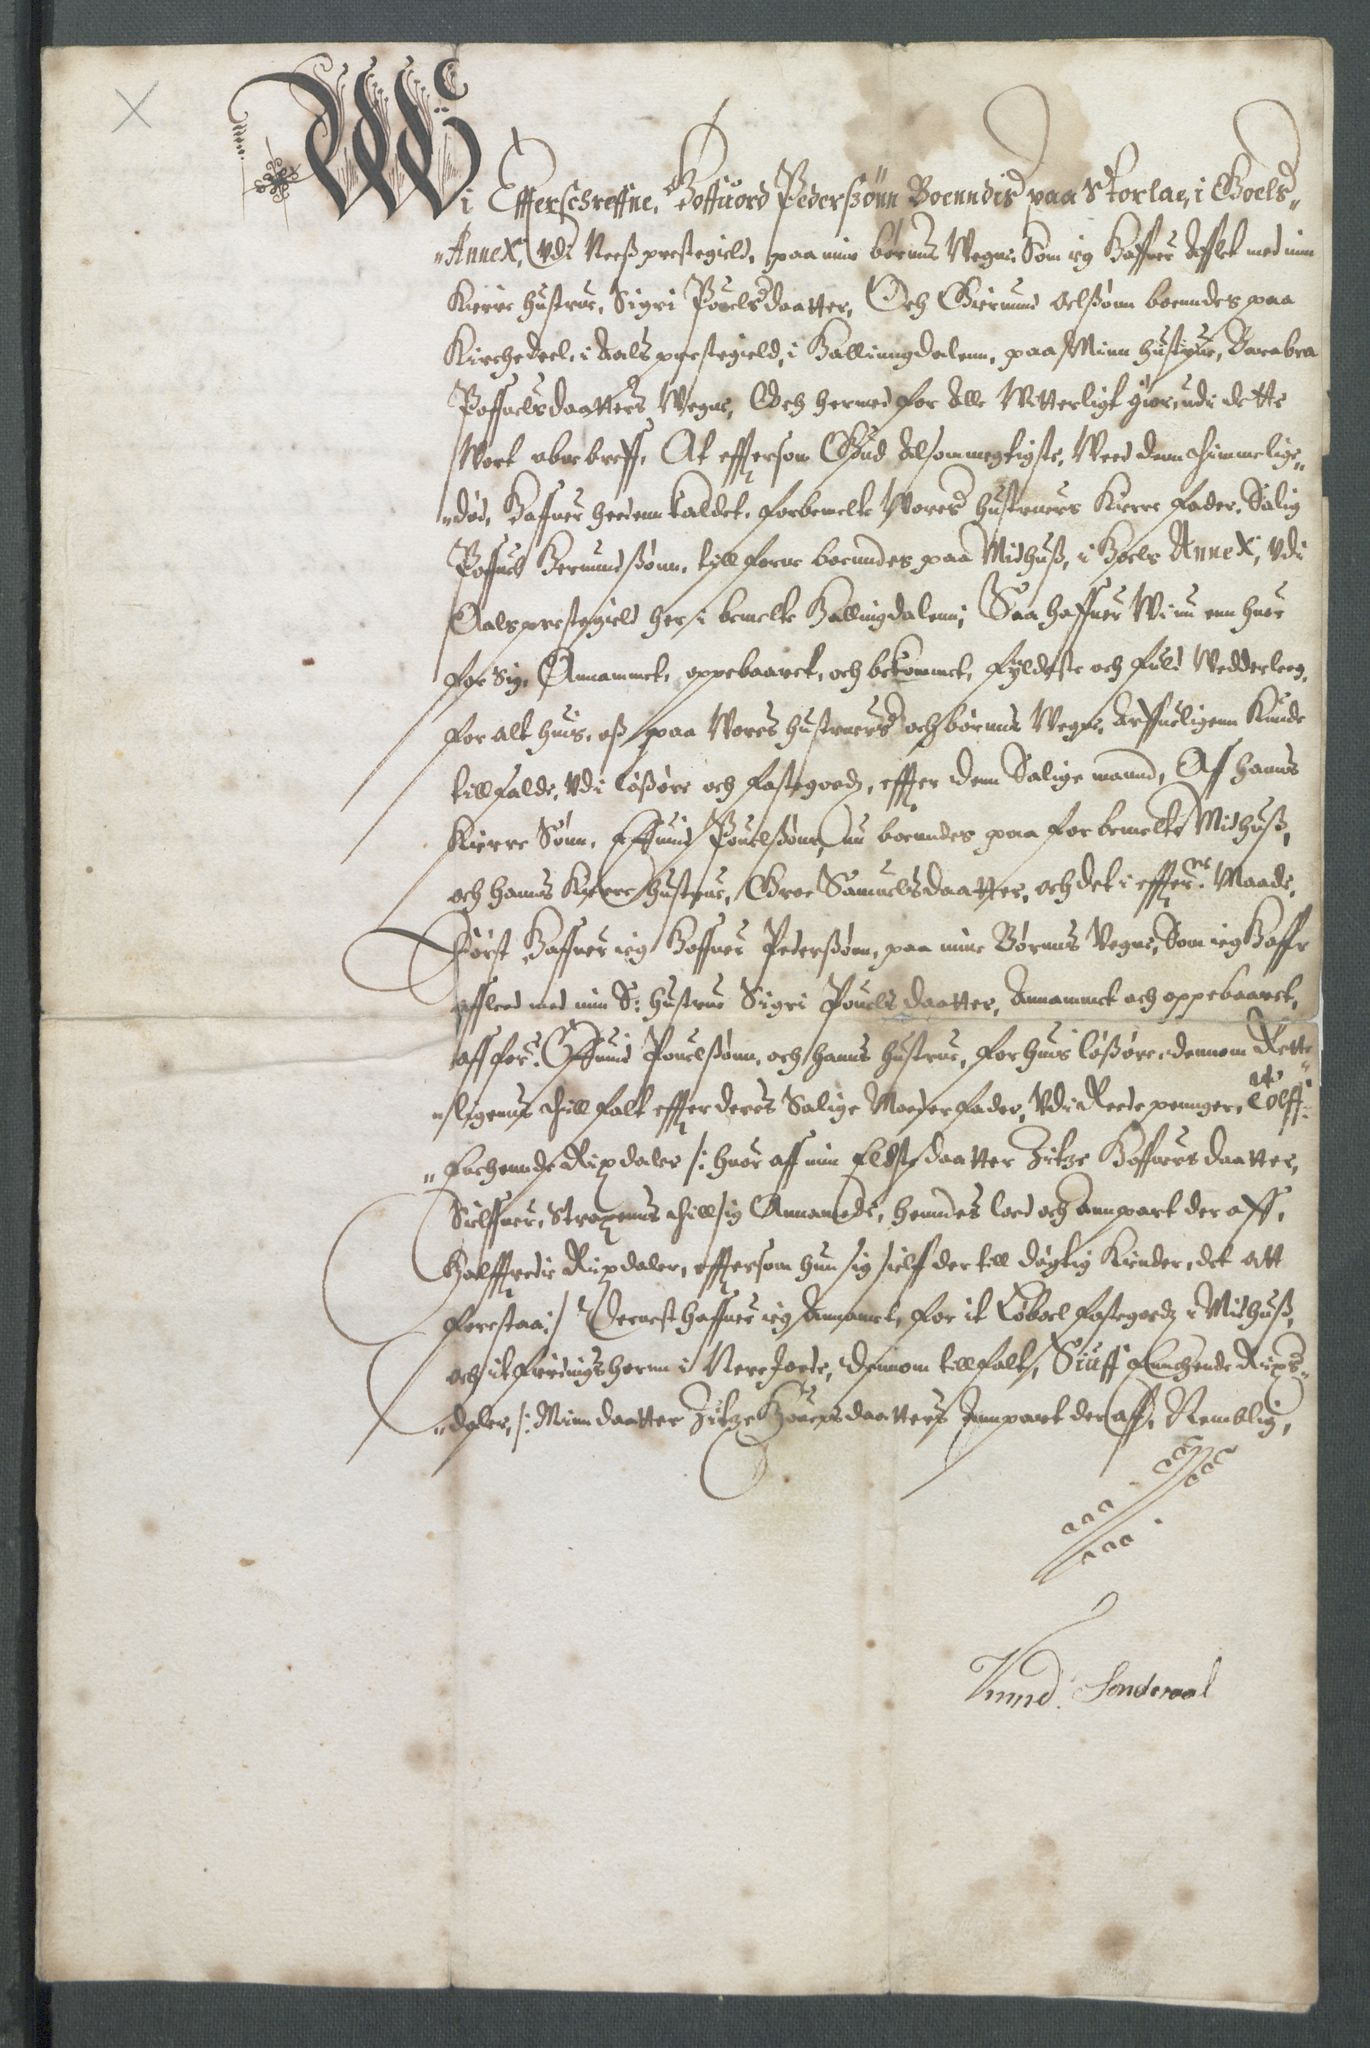 Wi Effterschreffne, Boffuord Pederszönn Boenndis paa Storlae, i Goels
Annex, Vdi Neeß prestegield, paa mine börnns Wegne, Som ieg Haffuer Afflet med min
Kierre hustrue, Sigri Pouelsdaatter, Och Giermund Oelßönn boenndes paa
Kirchedeel, i Aals prestegield, i Hallinngdalenn, paa Minn hustrue, Barabra
Poffuelsdaatters Wegne, Och hermed for Alle Witterligt giör, vdi dette
Wort obne breff, At efftersom Gud Alsommegtigste, Wed denn thimmelige
död, Haffuer heedenn kaldet, forbemelte Wores hustruers Kierre fader, Salig
Poffuel Germundßönn, till forne boenndes paa Midhuß, i Goels Annex, vdi
Aals prestegield her i bemelte Hallingdalenn; Saa haffuer Wi nu enn huer
for sig, Annammet, oppebaaret, och bekommet, fyldeste och fuld Wedderleeg,
for alt huis, oß paa Wores hustruers och börnns Wegne, Arffueligenn Kunde
tillfalde, vdi lößöre och fastegoeds, effter denn Salige mannd, Af hanns
Kierre Sönn, Effuind Pouelßönn, nu boenndes paa forbemelte Midhuß,
och hanns Kierre hustrue, Groe Samuelsdaatter, och det i effter:ne Maade,
Först Haffuer ieg Boffuer Pederßönn, paa mine Börnns Vegne, Som ieg Haffr
affleed med min S: hustrue Sigri Pouelsdaatter, Annammet och oppebaaret,
aff for: Effuind Pouelßönn, och hanns hustrue, for huis lößöre, dennom Rette
ligenns thillfalt effter deres Salige Moederfader, Vdi Reede penninger, Tolff
huchennde Rixdaler /: huor aff min Eldste daatter Zitze Boffuersdaatter,
Sielffuer, Straxenns thill sig Annamede, henndes lod och annpart der aff,
Halfftredie Rixdaler, efftersom hun sig sielff der till dögtig Kiender, det att
forestaa :/ Dernest haffuer ieg Annamet, for it Löboel fastegoeds i Midhuß,
och it fierdings herm i Nerejorde, dennom tillfalt, Siuff Huchende Rixs
daler, /: Minn daatter Zitze Bouersdaatters Annpart der aff, Nemblig,
Knud Sonderaal